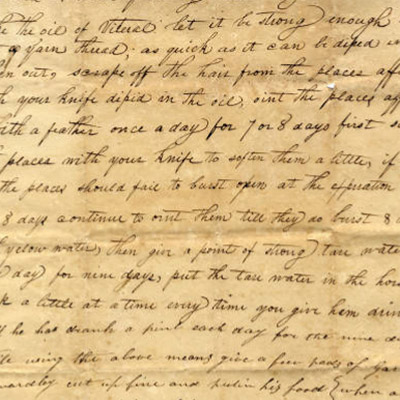 the oil of Viteral let it be strong enough
a yarn thread; as quick as it can be diped in
out, scrape off the hair from the places aff
your knife dipid in the oil, oint the places aff
with a feather once a day for 7 or 8 days first s
places with your knife to soften them a little, if
the places should fail to burst open at the experation
8 days continue to oint them till they do burst &
yelow water, then give a point of strong tare wate
day for nine days, put the tare water in the hors
a little at a time every time you give hem drin
he has drank a pint each day for the nine d
using the above means give a few pods of gar
cut up fine and put in his food when